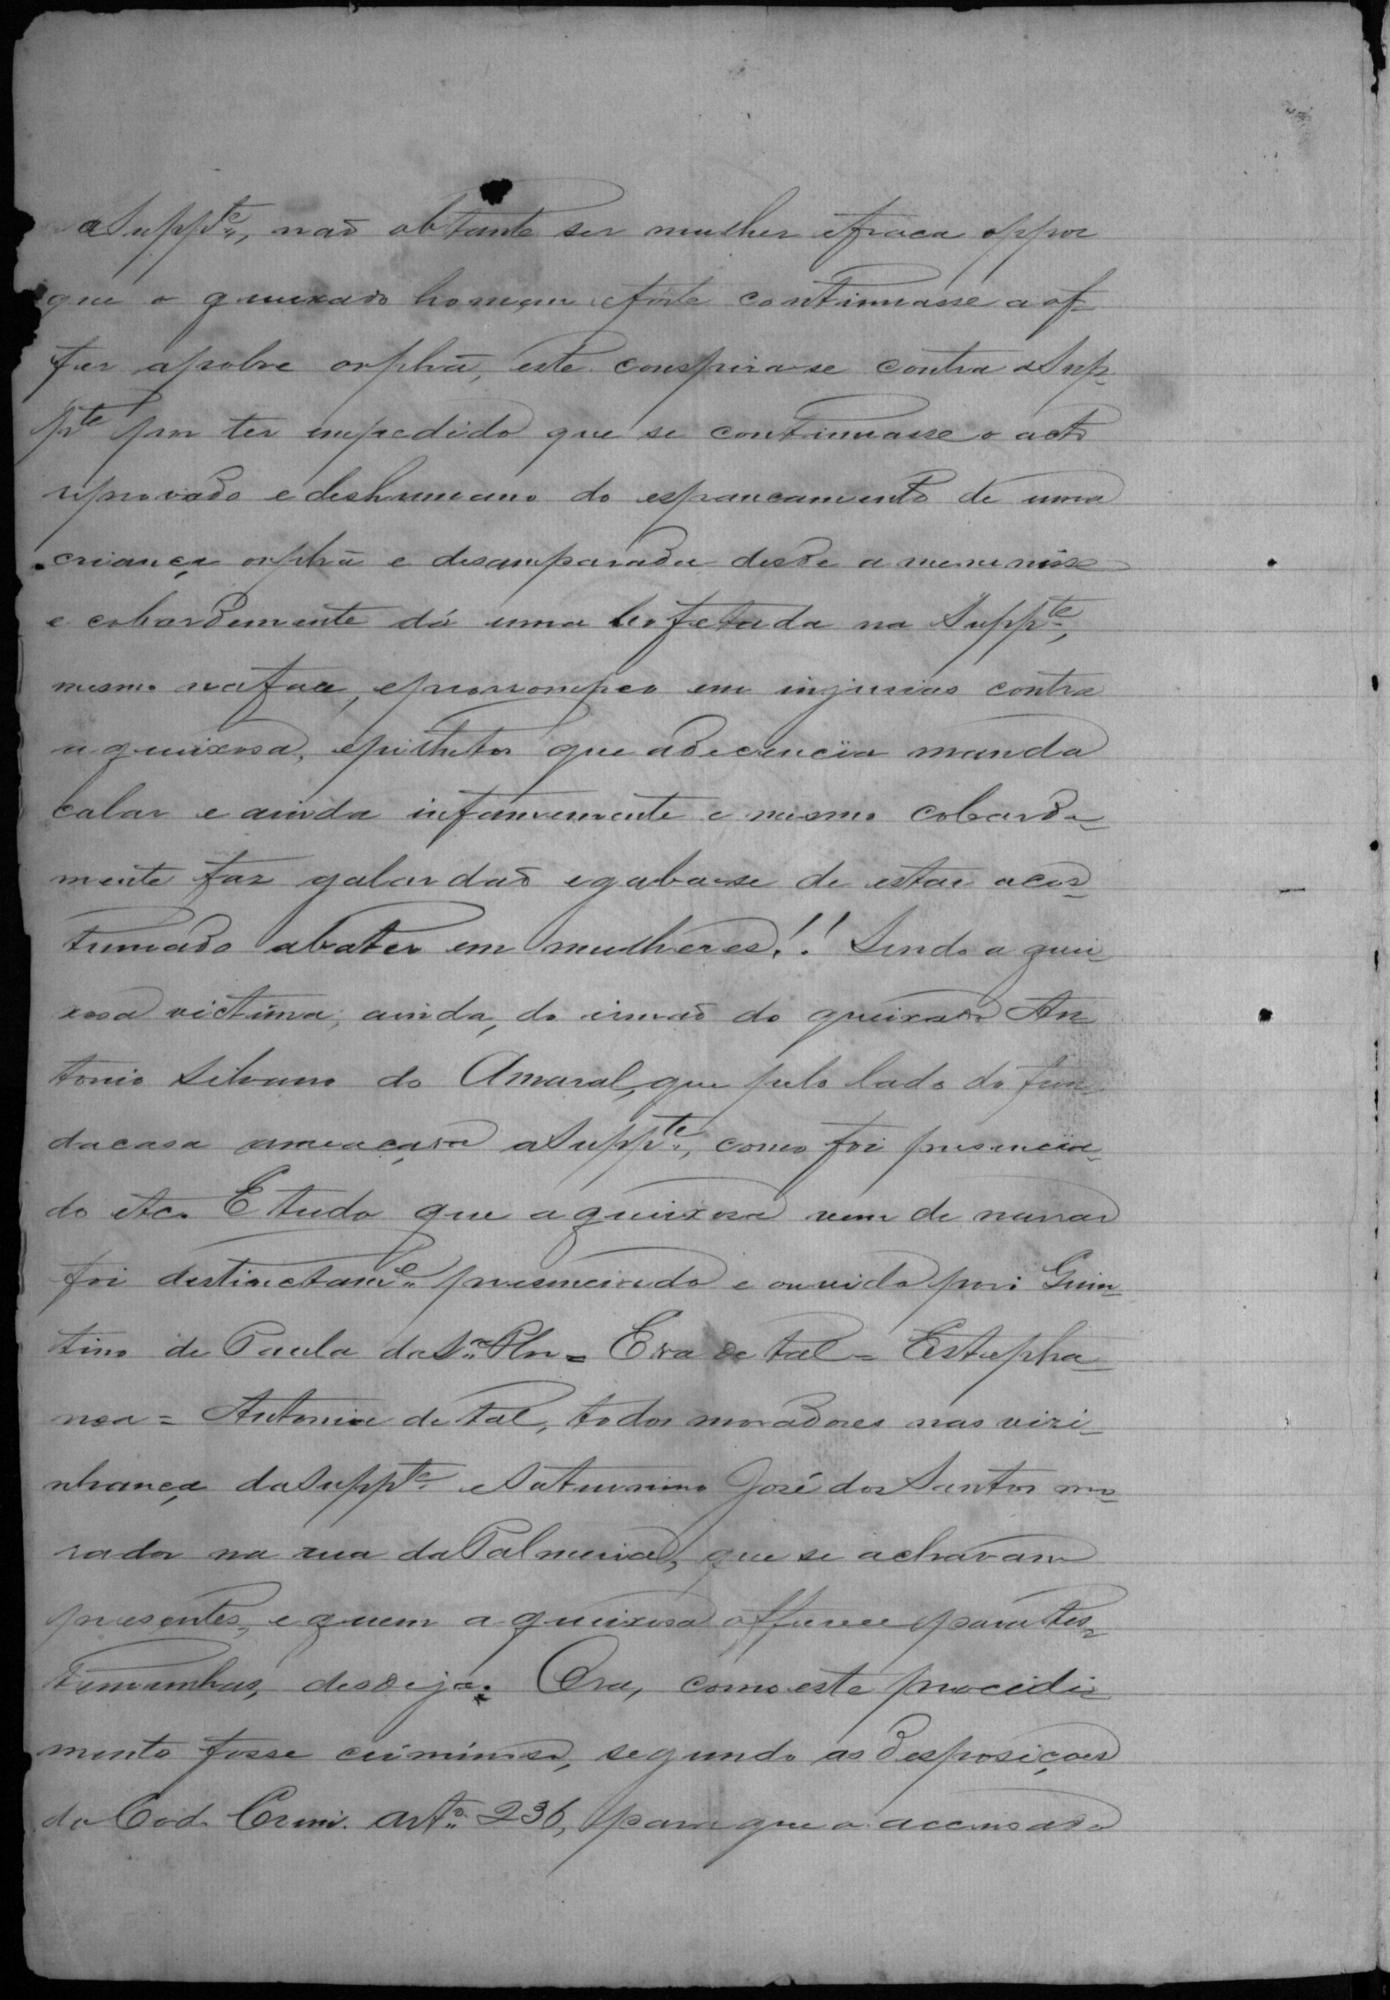 a Supp.te, não obstante ser mulher e fraca oppor
que o queixado homem e forte continuasse a of
fer a pobre orphã, este conspira-se contra a Sup-
p.te por ter impedido que se continuasse o acto
reprovado e deshumano do espancamento de uma
criança orphã e desamparada desde a meninise
e cobardemente dá uma bofetada na Supp.te,
mesmo na face, e prorrompeo em injurias contra
a queixosa, epithetos que a decencia manda
calar e ainda infamemente e mesmo cobarde-
mente faz galardão e gaba-se de estar acos-
tumado a bater em mulheres!! Sendo a quei-
xosa victima, ainda, do irmão do queixado An
tonio Silvano do Amaral, que pelo lado do fun
da casa ameaçava a Supp.te, como foi presencia-
do etc. E tudo que a queixosa vem de narrar
foi distinctam.e presenciado e ouvido por: Quin-
tino de Paula da S.a Flor = Eva de tal = Estepha-
nea = Antonia de tal, todos moradores nas vizi-
nhança da Supp.te e Saturnino José dos Santos mo-
rador na rua da Palmeira, que se achavam
presentes, e quem a queixosa offerece para tes-
temunhas, desde já. Ora, como este procedi-
mento fosse criminoso, segundo as desposições
do Cod. Crim. art.o 236, para que o accusado